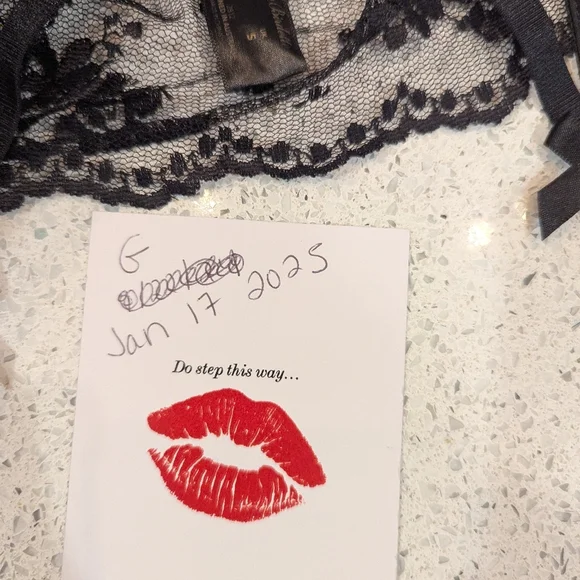 G
Jan 17 2025
Do step this way...